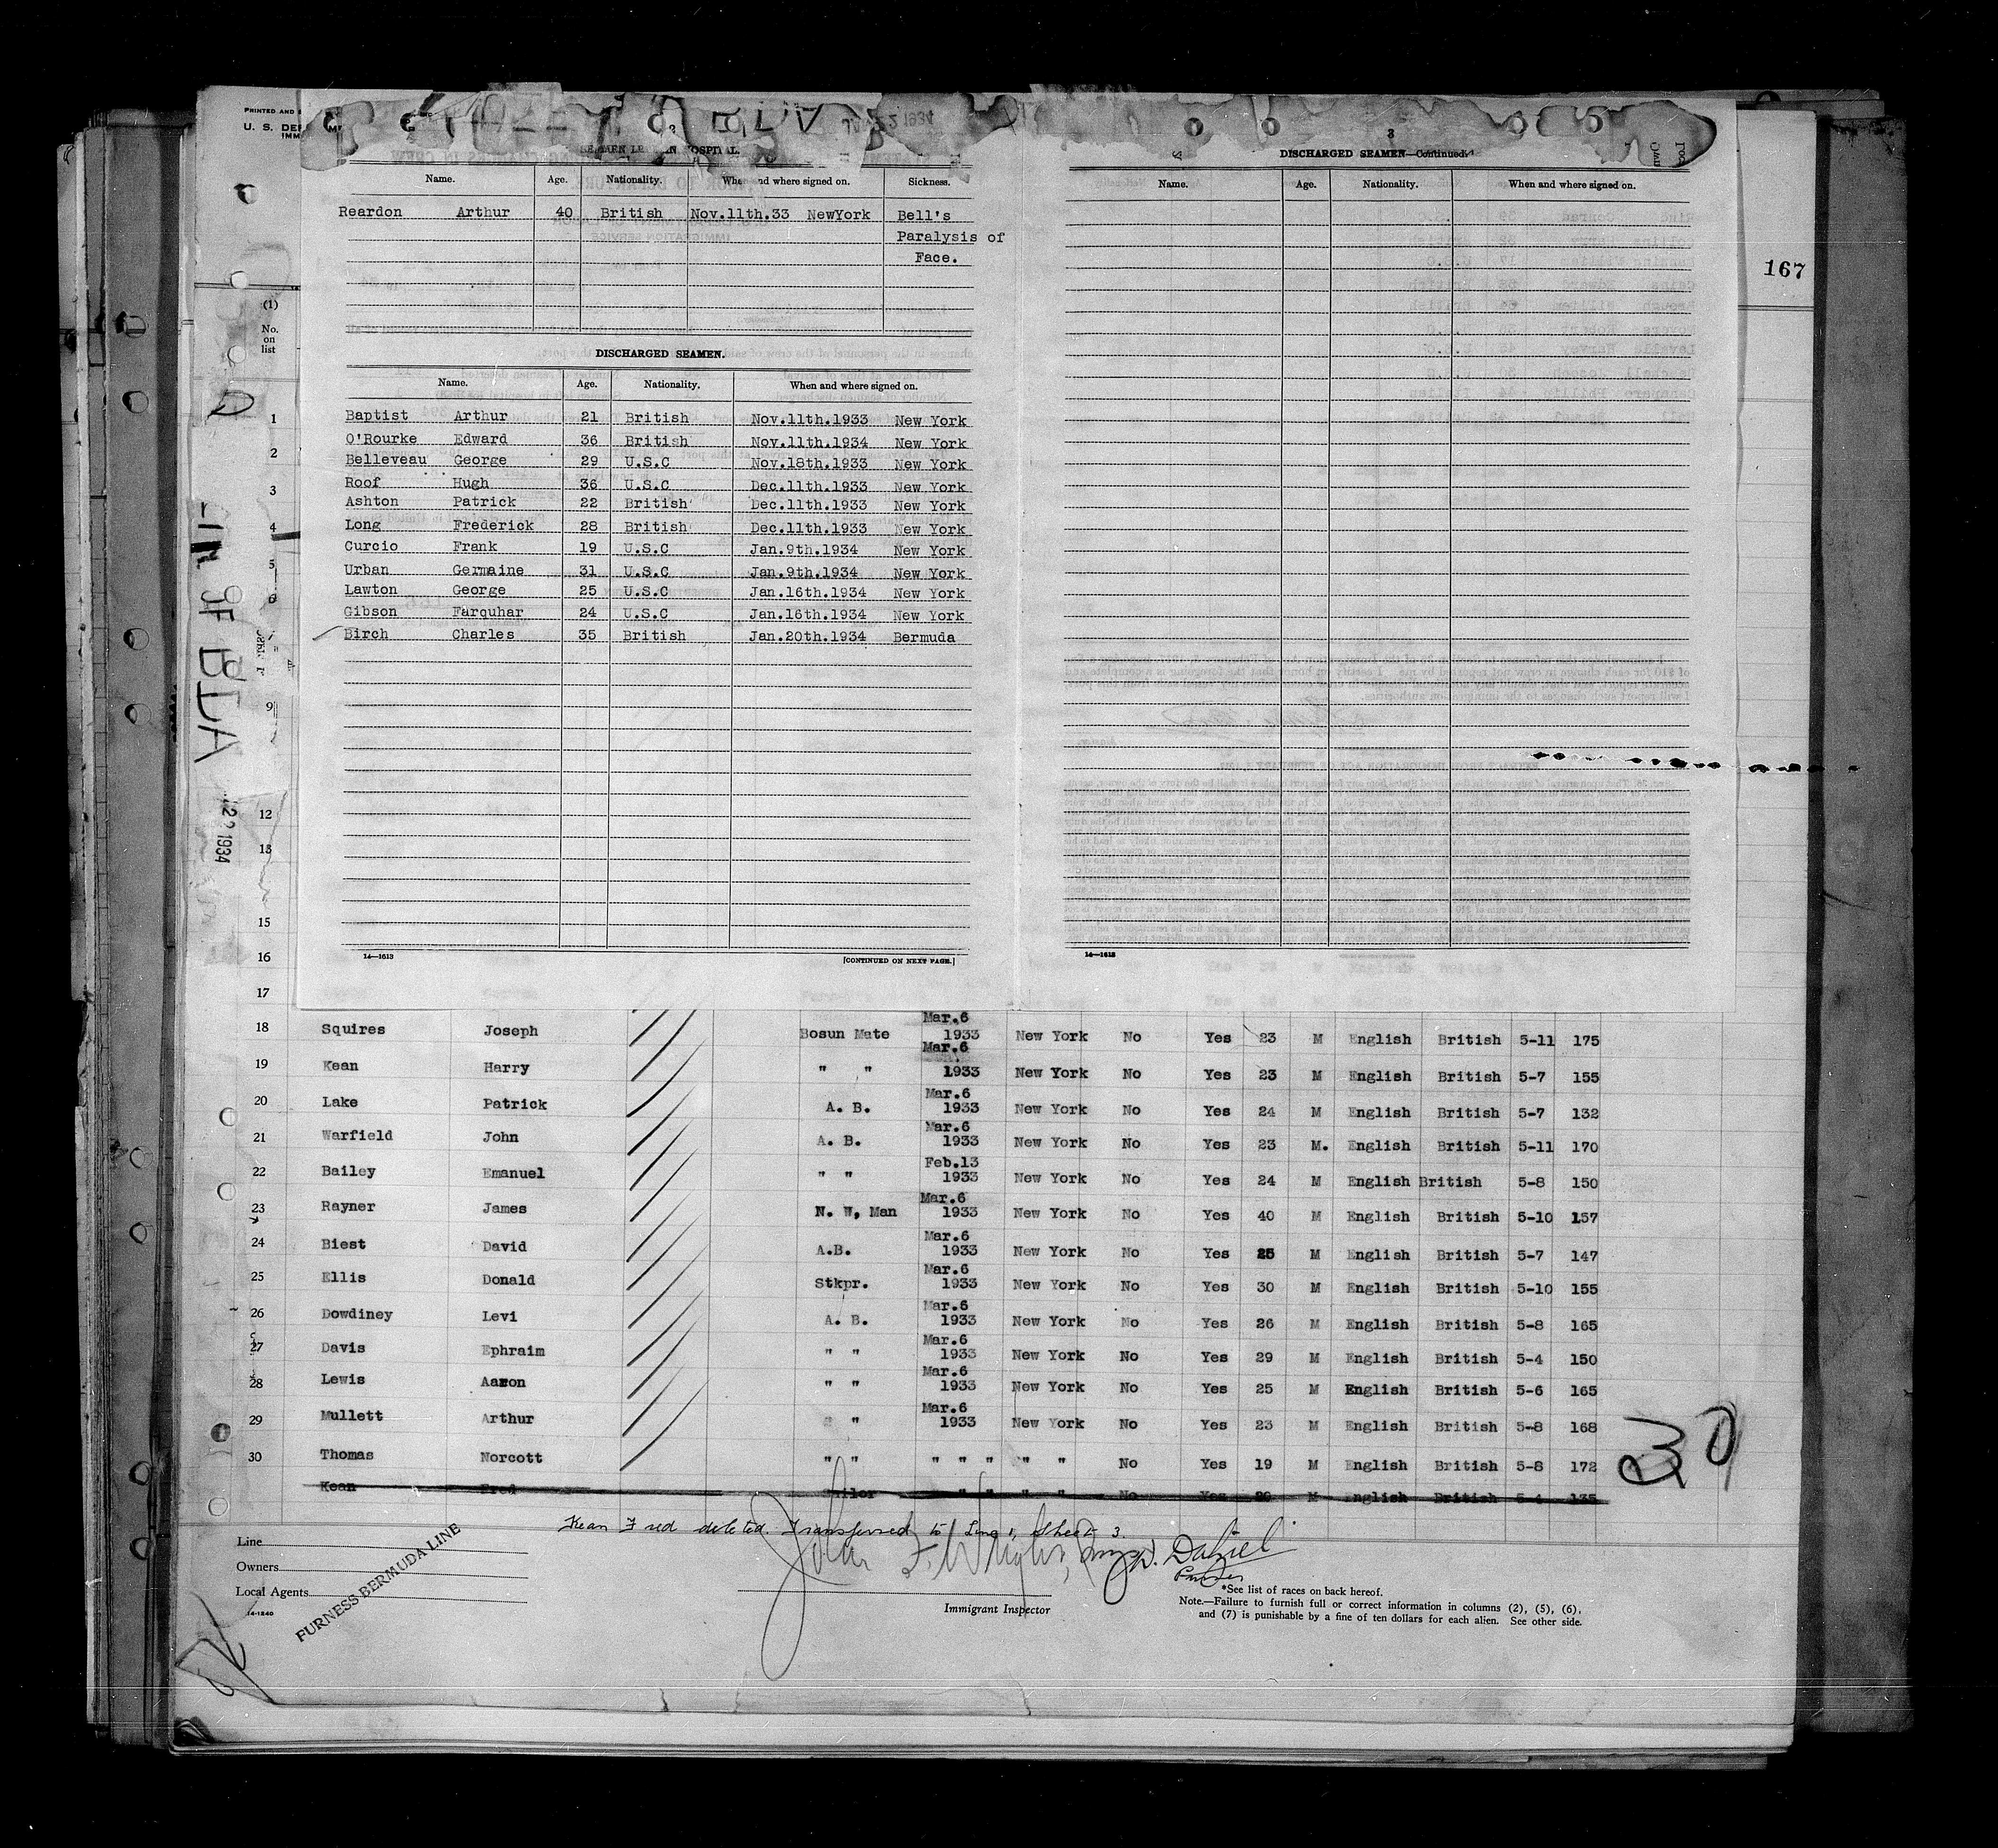 PRINTED AND
U. S. DEP
IMM
JAN 22 1934
SEAMEN LE IN HOSPITAL.
Name. Age. Nationality. When and where signed on. Sickness.
Reardon Arthur 40 British Nov.11th.33 NewYork Bell's
Paralysis of
Face.
DISCHARGED SEAMEN.
Name. Age. Nationality. When and where signed on.
Baptist Arthur 21 British Nov.11th.1933 New York
O'Rourke Edward 36 British Nov.11th.1934 New York
Belleveau George 29 U.S.C Nov.18th.1933 New York
Roof Hugh 36 U.S.C Dec.11th.1933 New York
Ashton Patrick 22 British Dec.11th.1933 New York
Long Frederick 28 British Dec.11th.1933 New York
Curcio Frank 19 U.S.C Jan.9th.1934 New York
Urban Germaine 31 U.S.C Jan.9th.1934 New York
Lawton George 25 U.S.C Jan.16th.1934 New York
Gibson Farquhar 24 U.S.C Jan.16th.1934 New York
Birch Charles 35 British Jan.20th.1934 Bermuda
14—1613 [CONTINUED ON NEXT PAGE.]
3
DISCHARGED SEAMEN—Continued.
Name. Age. Nationality. When and where signed on.
14—1613
167
(1)
No.
on
list
1
2
3
4
5
6
9
12
13
15
16
17
OF BDA
22 1934
18 Squires Joseph Bosun Mate Mar.6 1933 New York No Yes 23 M English British 5-11 175
19 Kean Harry " " Mar.6 1933 New York No Yes 23 M English British 5-7 155
20 Lake Patrick A. B. Mar.6 1933 New York No Yes 24 M English British 5-7 132
21 Warfield John A. B. Mar.6 1933 New York No Yes 23 M. English British 5-11 170
22 Bailey Emanuel " " Feb.13 1933 New York No Yes 24 M English British 5-8 150
23 Rayner James N. W, Man Mar.6 1933 New York No Yes 40 M English British 5-10 157
24 Biest David A.B. Mar.6 1933 New York No Yes 25 M English British 5-7 147
25 Ellis Donald Stkpr. Mar.6 1933 New York No Yes 30 M English British 5-10 155
26 Dowdiney Levi A. B. Mar.6 1933 New York No Yes 26 M English British 5-8 165
27 Davis Ephraim " " Mar.6 1933 New York No Yes 29 M English British 5-4 150
28 Lewis Aaron " " Mar.6 1933 New York No Yes 25 M English British 5-6 165
29 Mullett Arthur " " Mar.6 1933 New York No Yes 23 M English British 5-8 168
30 Thomas Norcott " " " " " " " No Yes 19 M English British 5-8 172
Kean Fred Sailor " " " " No Yes 20 M English British 5-4 135
30
Kean Fred deleted. Transferred to Line 1, Sheet 3.
Line
Owners
Local Agents
14-1240
FURNESS BERMUDA LINE
John F. Wright
W. Daniel
Purser
Immigrant Inspector
*See list of races on back hereof.
Note.—Failure to furnish full or correct information in columns (2), (5), (6),
and (7) is punishable by a fine of ten dollars for each alien. See other side.